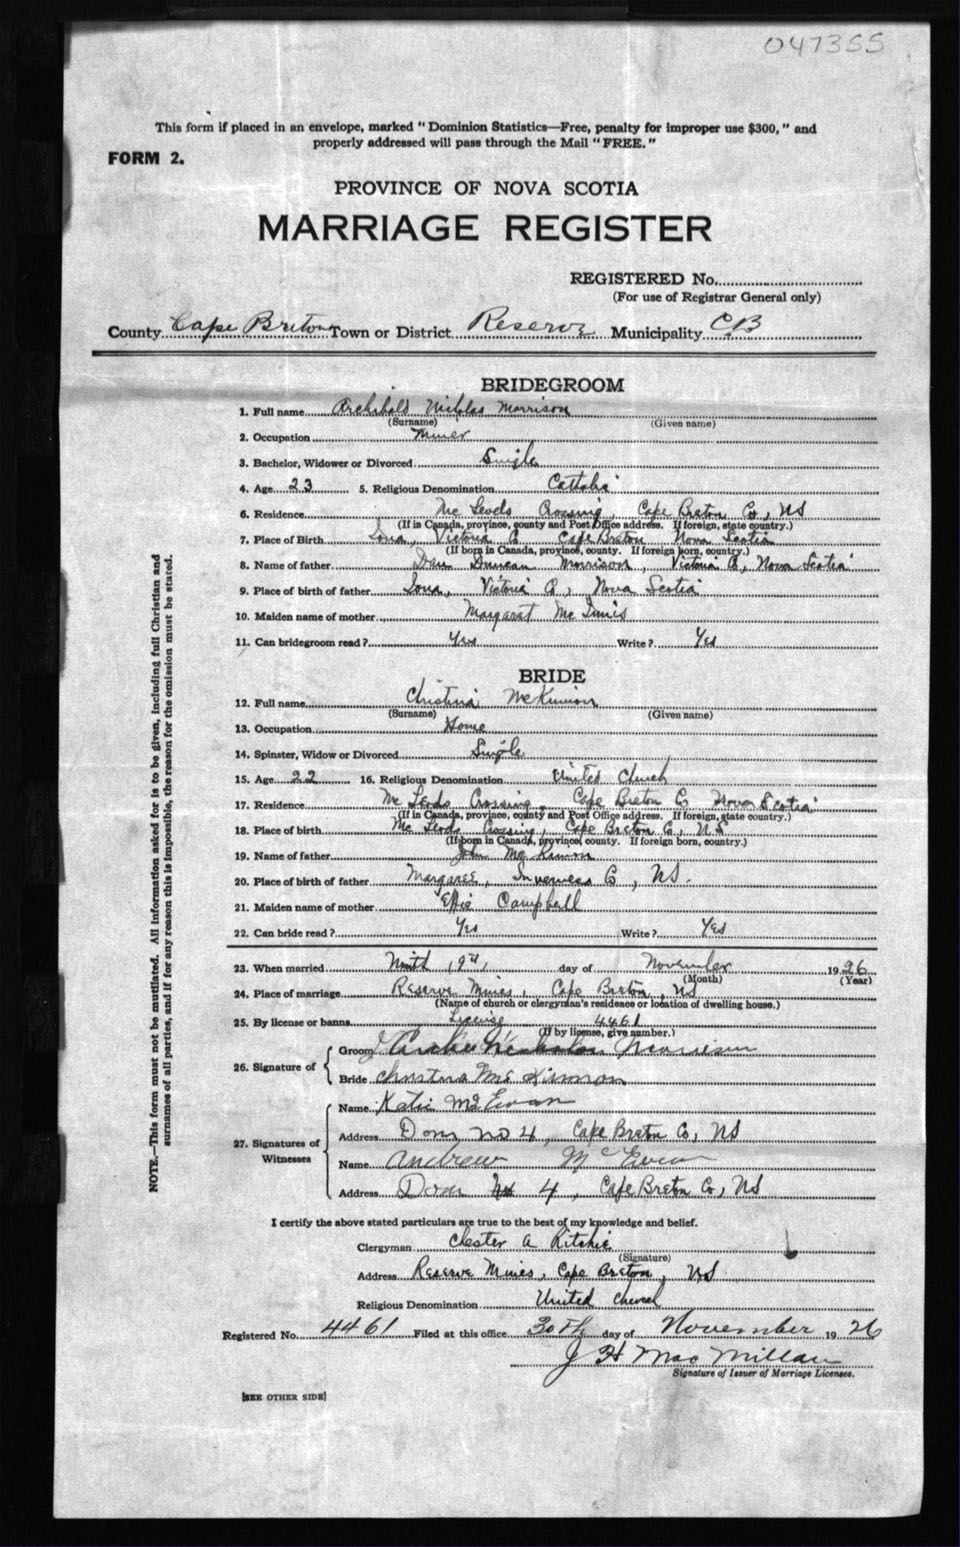 047355
This form if placed in an envelope, marked "Dominion Statistics—Free, penalty for improper use $300," and
properly addressed will pass through the Mail "FREE."
FORM 2.
PROVINCE OF NOVA SCOTIA
MARRIAGE REGISTER
REGISTERED No.
(For use of Registrar General only)
County Cape Breton Town or District Reserve Municipality C.B
BRIDEGROOM
1. Full name Archibald Nicholas Morrison
(Surname) (Given name)
2. Occupation Miner
3. Bachelor, Widower or Divorced Single
4. Age 23 5. Religious Denomination Catholic
6. Residence Mc Leods Crossing, Cape Breton Co, NS
(If in Canada, province, county and Post Office address. If foreign, state country.)
7. Place of Birth Iona, Victoria Co Cape Breton Nova Scotia
(If born in Canada, province, county. If foreign born, country.)
8. Name of father Dan Duncan Morrison, Victoria Co, Nova Scotia
9. Place of birth of father Iona, Victoria Co, Nova Scotia
10. Maiden name of mother Margaret Mc Innis
11. Can bridegroom read? Yes Write? Yes
BRIDE
12. Full name Christina McKinnon
(Surname) (Given name)
13. Occupation Home
14. Spinster, Widow or Divorced Single
15. Age 22 16. Religious Denomination United Church
17. Residence Mc Leods Crossing, Cape Breton Co Nova Scotia
(If in Canada, province, county and Post Office address. If foreign, state country.)
18. Place of birth Mc Leods Crossing, Cape Breton Co, NS
(If born in Canada, province, county. If foreign born, country.)
19. Name of father John McKinnon
20. Place of birth of father Margaree, Inverness Co, NS.
21. Maiden name of mother Effie Campbell
22. Can bride read? Yes Write? Yes
23. When married Ninth, 9th, day of November 1926
(Month) (Year)
24. Place of marriage Reserve Mines, Cape Breton, NS
(Name of church or clergyman's residence or location of dwelling house.)
25. By license or banns License 4461
(If by license, give number.)
26. Signature of Groom Nicholas Morrison
Bride Christina Mc Kinnon
27. Signatures of Witnesses Name Katie McEwan
Address Dom no 4, Cape Breton Co, NS
Name Andrew McEwan
Address Dom No 4, Cape Breton Co, NS
I certify the above stated particulars are true to the best of my knowledge and belief.
Clergyman Chester A Ritchie
(Signature)
Address Reserve Mines, Cape Breton, NS
Religious Denomination United Church
Registered No. 4461 Filed at this office 30th day of November 1926
J H MacMillan
Signature of Issuer of Marriage Licenses.
[SEE OTHER SIDE]
NOTE.—This form must not be mutilated. All information asked for is to be given, including full Christian and
surnames of all parties, and if for any reason this is impossible, the reason for the omission must be stated.